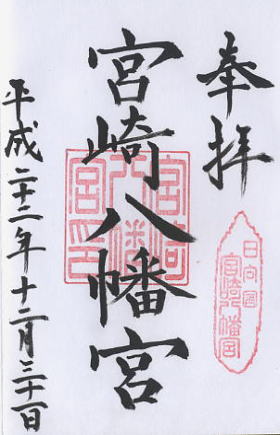 奉拝
日向国
宮崎八幡宮
宮崎八幡宮
宮崎
八幡
宮印
平成二十二年十二月三十一日